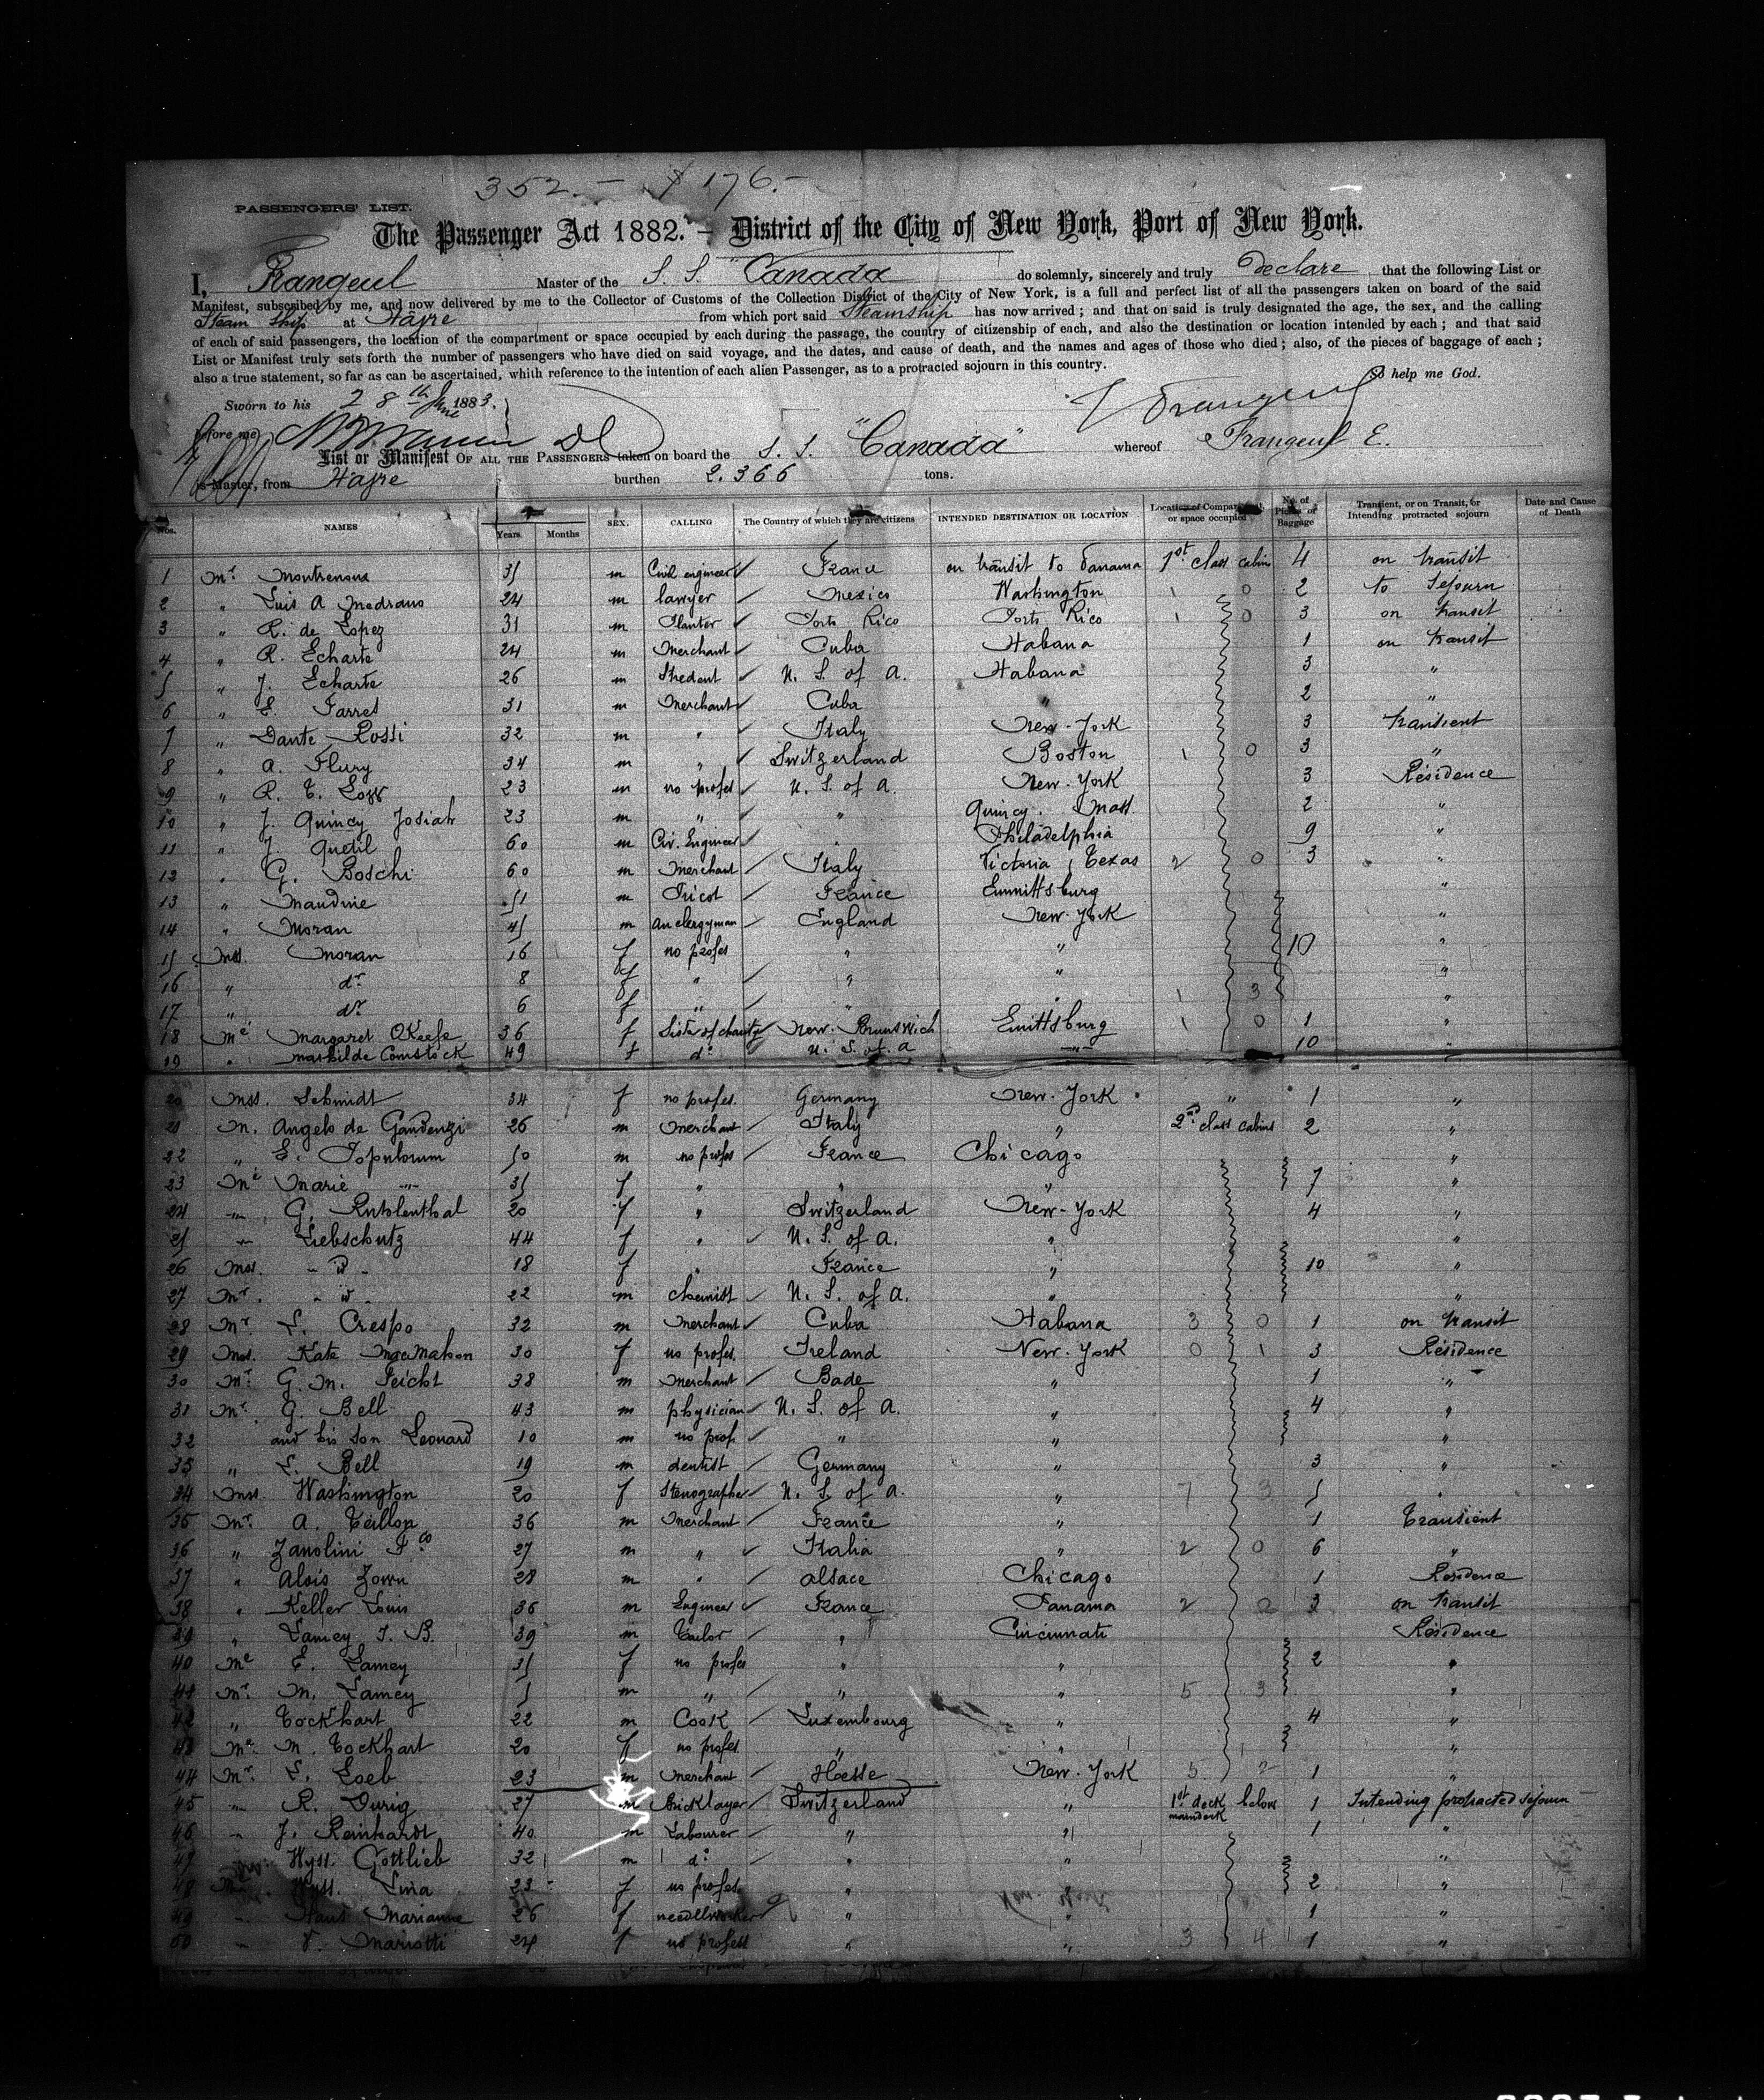 352.- $ 176.-
PASSENGERS' LIST.
The Passenger Act 1882. – District of the City of New York, Port of New York.
I, Frangeul Master of the S. S. "Canada" do solemnly, sincerely and truly declare that the following List or
Manifest, subscribed by me, and now delivered by me to the Collector of Customs of the Collection District of the City of New York, is a full and perfect list of all the passengers taken on board of the said
Steam Ship at Havre from which port said Steamship has now arrived; and that on said is truly designated the age, the sex, and the calling
of each of said passengers, the location of the compartment or space occupied by each during the passage, the country of citizenship of each, and also the destination or location intended by each; and that said
List or Manifest truly sets forth the number of passengers who have died on said voyage, and the dates, and cause of death, and the names and ages of those who died; also, of the pieces of baggage of each;
also a true statement, so far as can be ascertained, whith reference to the intention of each alien Passenger, as to a protracted sojourn in this country. So help me God.
Sworn to his 28th June 1883. Frangeul
before me
List or Manifest OF ALL THE PASSENGERS taken on board the S. S. "Canada" whereof Frangeul E.
is Master, from Havre burthen 2.366 tons.
Nos. NAMES Years Months SEX. CALLING The Country of which they are citizens INTENDED DESTINATION OR LOCATION Location of or space occupied No. of Pieces of Baggage Transient, or on Transit, or Intending protracted sojourn Date and Cause of Death
1 Mr. Montrenous 35 m Civil engineer France on transit to Panama 1st class cabin 4 on transit
2 " Luis A Medrano 24 m lawyer Mexico Washington 1 0 2 to Sejourn
3 " R. de Lopez 31 m Planter Porto Rico Porto Rico 1 0 3 on transit
4 " R. Echarte 24 m Merchant Cuba Habana 1 on transit
5 " J. Echarte 26 m Student U. S. of A. Habana 3 "
6 " E. Farres 31 m Merchant Cuba " 2 "
7 " Dante Rossi 32 m " Italy New-York 3 transient
8 " A. Flury 34 m " Switzerland Boston 1 0 3 "
9 " R. T. 23 m no profes U. S. of A. New-York 3 Résidence
10 " J. Quincy Josiah 23 m " " Quincy. Mass. 2 "
11 " J. Quetil 60 m Civ. Engineer " Philadelphia 9 "
12 " G. Boschi 60 m Merchant Italy Victoria, Texas 2 0 3 "
13 " Maudine 51 m France Emmittsburg "
14 " Moran 45 m an clergyman England New-York "
15 Mss. Moran 16 f no profes " " 10 "
16 " do 8 f " " " "
17 " do 6 f " " " 1 3 "
18 Me Margaret OKeefe 36 f Sister of charity New-Brunswich Emittsburg 1 0 1 "
19 " Mathilde Comstock 49 f do U. S. of a " 10 "
20 Mss. Schmidt 34 f no profes. Germany New-York " 1 "
21 M. Angelo de Gaudenzi 26 m Merchant Italy " 2nd class cabins 2 "
22 " E. Populorum 50 m no profes France Chicago "
23 Me Marie " 35 f " " " 7 "
24 " G. Ruhlenthal 20 f " Switzerland New-York 4 "
25 " Liebschutz 44 f " U. S. of A. " "
26 Mss. " d " 18 f " France " 10 "
27 Mr. " d " 22 m chemist U. S. of A. " "
28 Mr. L. Crespo 32 m Merchant Cuba Habana 3 0 1 on transit
29 Mss. Kate MacMahon 30 f no profes. Ireland New-York 0 1 3 Résidence
30 Mr. G. M. Feicht 38 m Merchant Bade " 1 "
31 Mr. G. Bell 43 m physician U. S. of A. " 4 "
32 and his son Leonard 10 m no prof. " " "
33 " L. Bell 19 m dentist Germany " 3 "
34 Mss. Washington 20 f Stenographer U. S. of a. " 7 3 5 "
35 Mr. A. Teillon 36 m Merchant France " 1 Transient
36 " Zanolini Fco 27 m " Italia " 2 0 6 "
37 " Alois Zorn 28 m " alsace Chicago 1 Residence
38 " Keller Louis 36 m Engineer France Panama 2 2 3 on transit
39 " Lamey J. B. 39 m Tailor " Cincinnati Résidence
40 Me E. Lamey 35 f no profes " " 2 "
41 Mr. M. Lamey 5 m " " " 5 3 "
42 " Tockhart 22 m Cook Luxembourg " 4 "
43 Me. M. Tockhart 20 f no profes " " "
44 Mr. L. Loeb 23 m Merchant Hesse New-York 5 2 1 "
45 " R. Durig 27 m Bricklayer Switzerland " 1st deck below maindeck 1 Intending protracted sejourn
46 " J. Reinhardt 40 m Labourer " " 1 "
47 Wyss. Gottlieb 32 m do " " "
48 Wyss. Lina 23 f no profes. " 2 "
49 " Haus Marianne 26 f needleworker " " 1 "
50 " V. Mariotti 24 f no profess " " 3 4 1 "